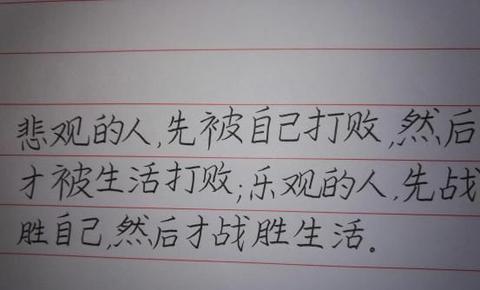 悲观的人,先被自己打败,然后
才被生活打败;乐观的人,先战
胜自己,然后才战胜生活。